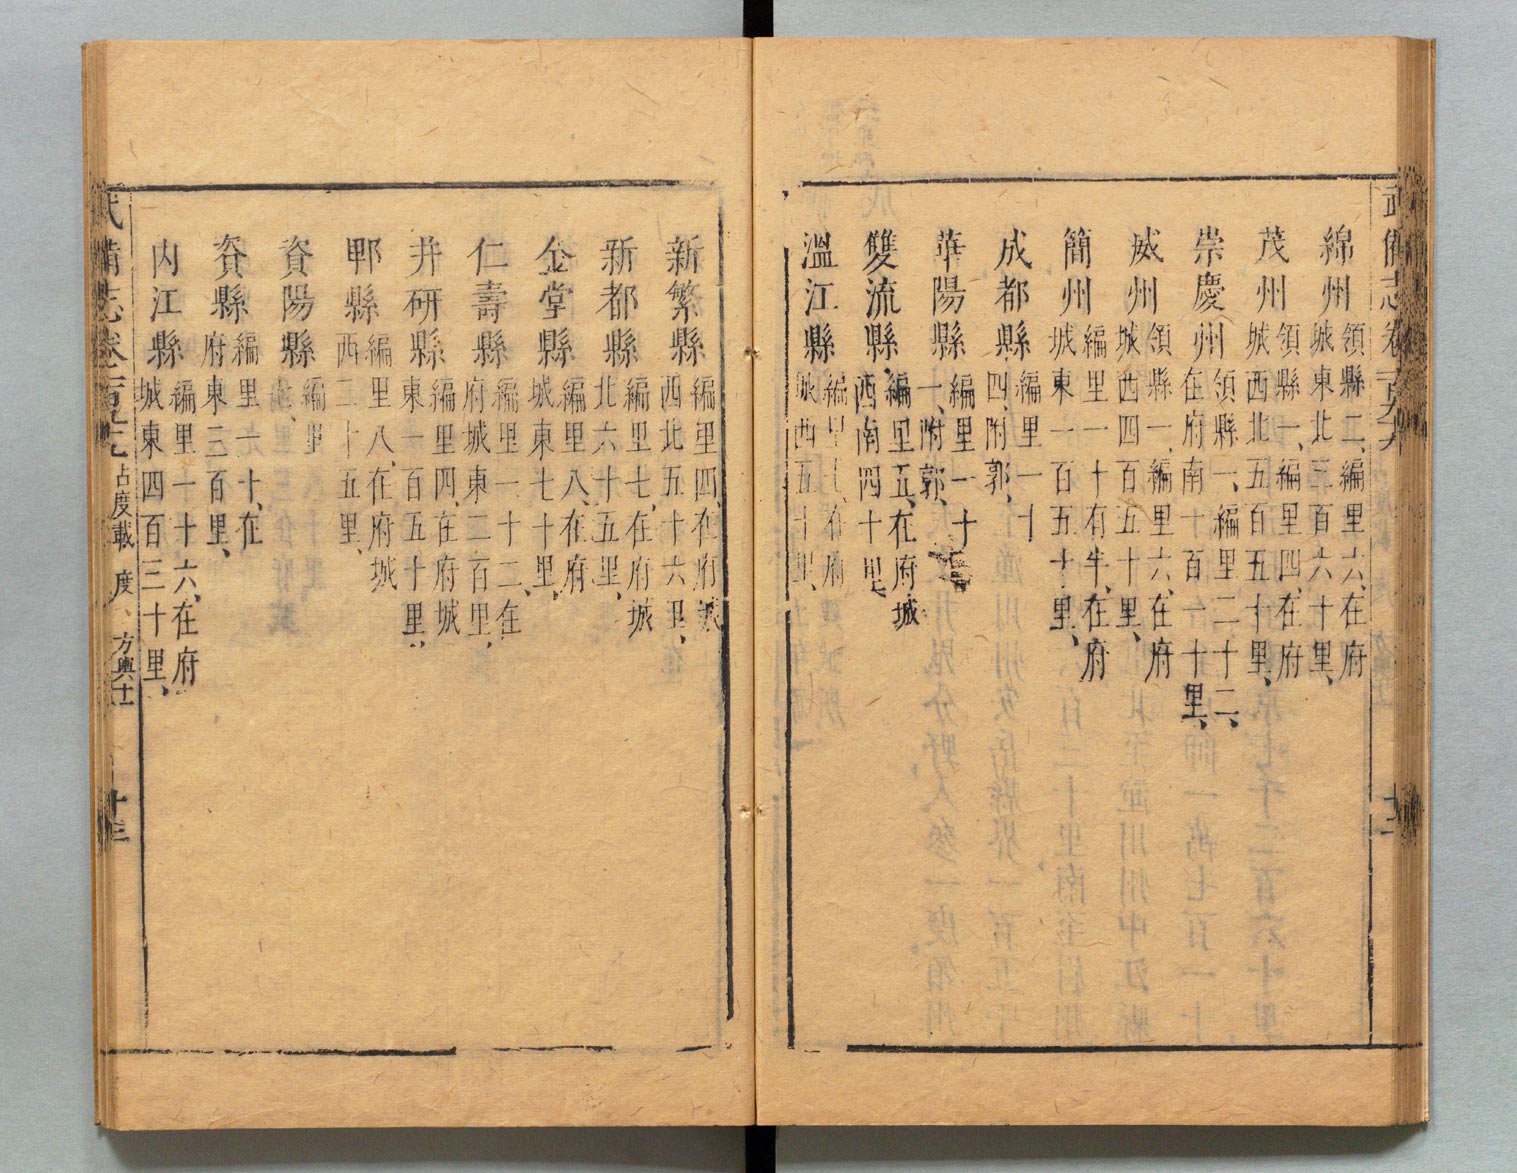 綿州領縣二、編里六、在府城東北三百六十里、
茂州領縣一、編里四、在府城西北五百五十里、
崇慶州領縣一、編里二十二、在府南十百一十里、
威州領縣一、編里六、在府城西四百五十里、
簡州編里一十有半、在府城東一百五十里、
成都縣編里一十四、附郭、
華陽縣編里一十一、附郭、
雙流縣編里五、在府城西南四十里、
溫江縣編里七、在府城西五十里、
新繁縣編里四、在府城西北五十六里、
新都縣編里七、在府城北六十五里、
金堂縣編里八、在府城東七十里、
仁壽縣編里一十二、在府城東二百里、
井研縣編里四、在府城東一百五十里、
郫縣編里八、在府城西二十五里、
資陽縣編里
資縣編里一十、在府東三百里、
内江縣編里一十六、在府城東四百三十里、
武備志卷 占度載 度、方輿 十三